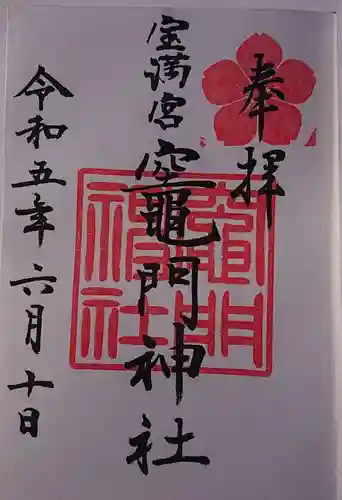 奉拝
宝満宮
竈門神社
竈門神社
令和五年六月十日